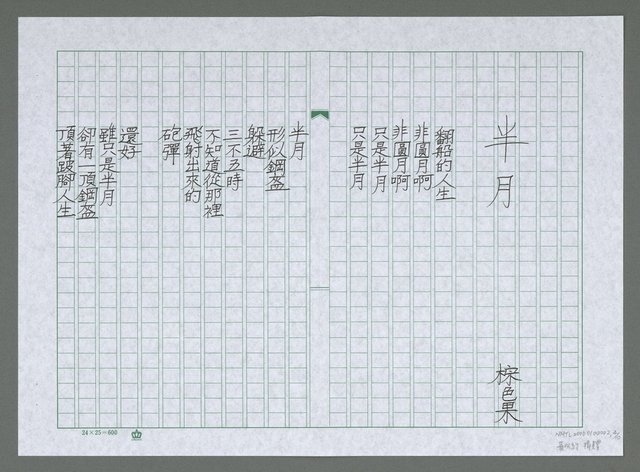 半月
棕色果
翻船的人生
非圓月啊
非圓月啊
只是半月
只是半月
半月
形似鋼盔
躲避
三不五時
不知道從那裡
飛射出來的
砲彈
還好
雖只是半月
卻有一頂鋼盔
頂著跛腳人生
24×25=600